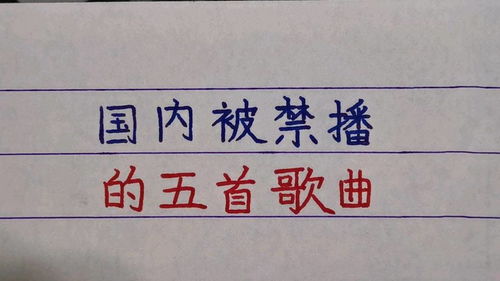 国内被禁播
的五首歌曲